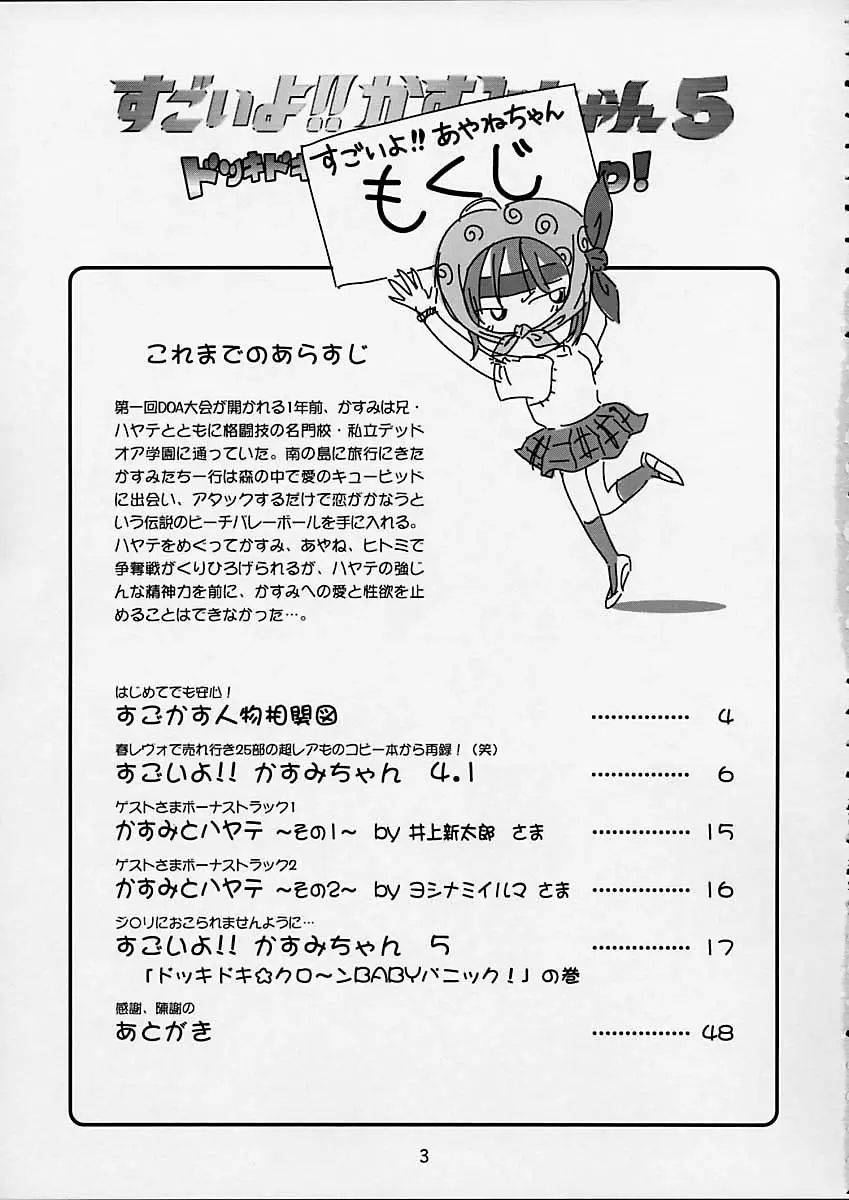 すごいよ!! かすみちゃん 5
ドッキドキ
すごいよ!! あやねちゃん
もくじ
これまでのあらすじ
第一回DOA大会が開かれる1年前、かすみは兄・
ハヤテとともに格闘技の名門校・私立デッド
オア学園に通っていた。南の島に旅行にきた
かすみたち一行は森の中で愛のキューピッド
に出会い、アタックするだけで恋がかなうと
いう伝説のビーチバレーボールを手に入れる。
ハヤテをめぐってかすみ、あやね、ヒトミで
争奪戦がくりひろげられるが、ハヤテの強じ
んな精神力を前に、かすみへの愛と性欲を止
めることはできなかった…。
はじめてでも安心!
すごかす人物相関図 ……………… 4
春レヴォで売れ行き25部の超レアものコピー本から再録!(笑)
すごいよ!! かすみちゃん 4.1 ……………… 6
ゲストさまボーナストラック1
かすみとハヤテ 〜その1〜 by 井上新太郎 さま ……………… 15
ゲストさまボーナストラック2
かすみとハヤテ 〜その2〜 by ヨシナミイルマ さま ……………… 16
ジ○リにおこられませんように…
すごいよ!! かすみちゃん 5 ……………… 17
「ドッキドキ☆クロ〜ンBABYパニック!」の巻
感謝、陳謝の
あとがき ……………… 48
3